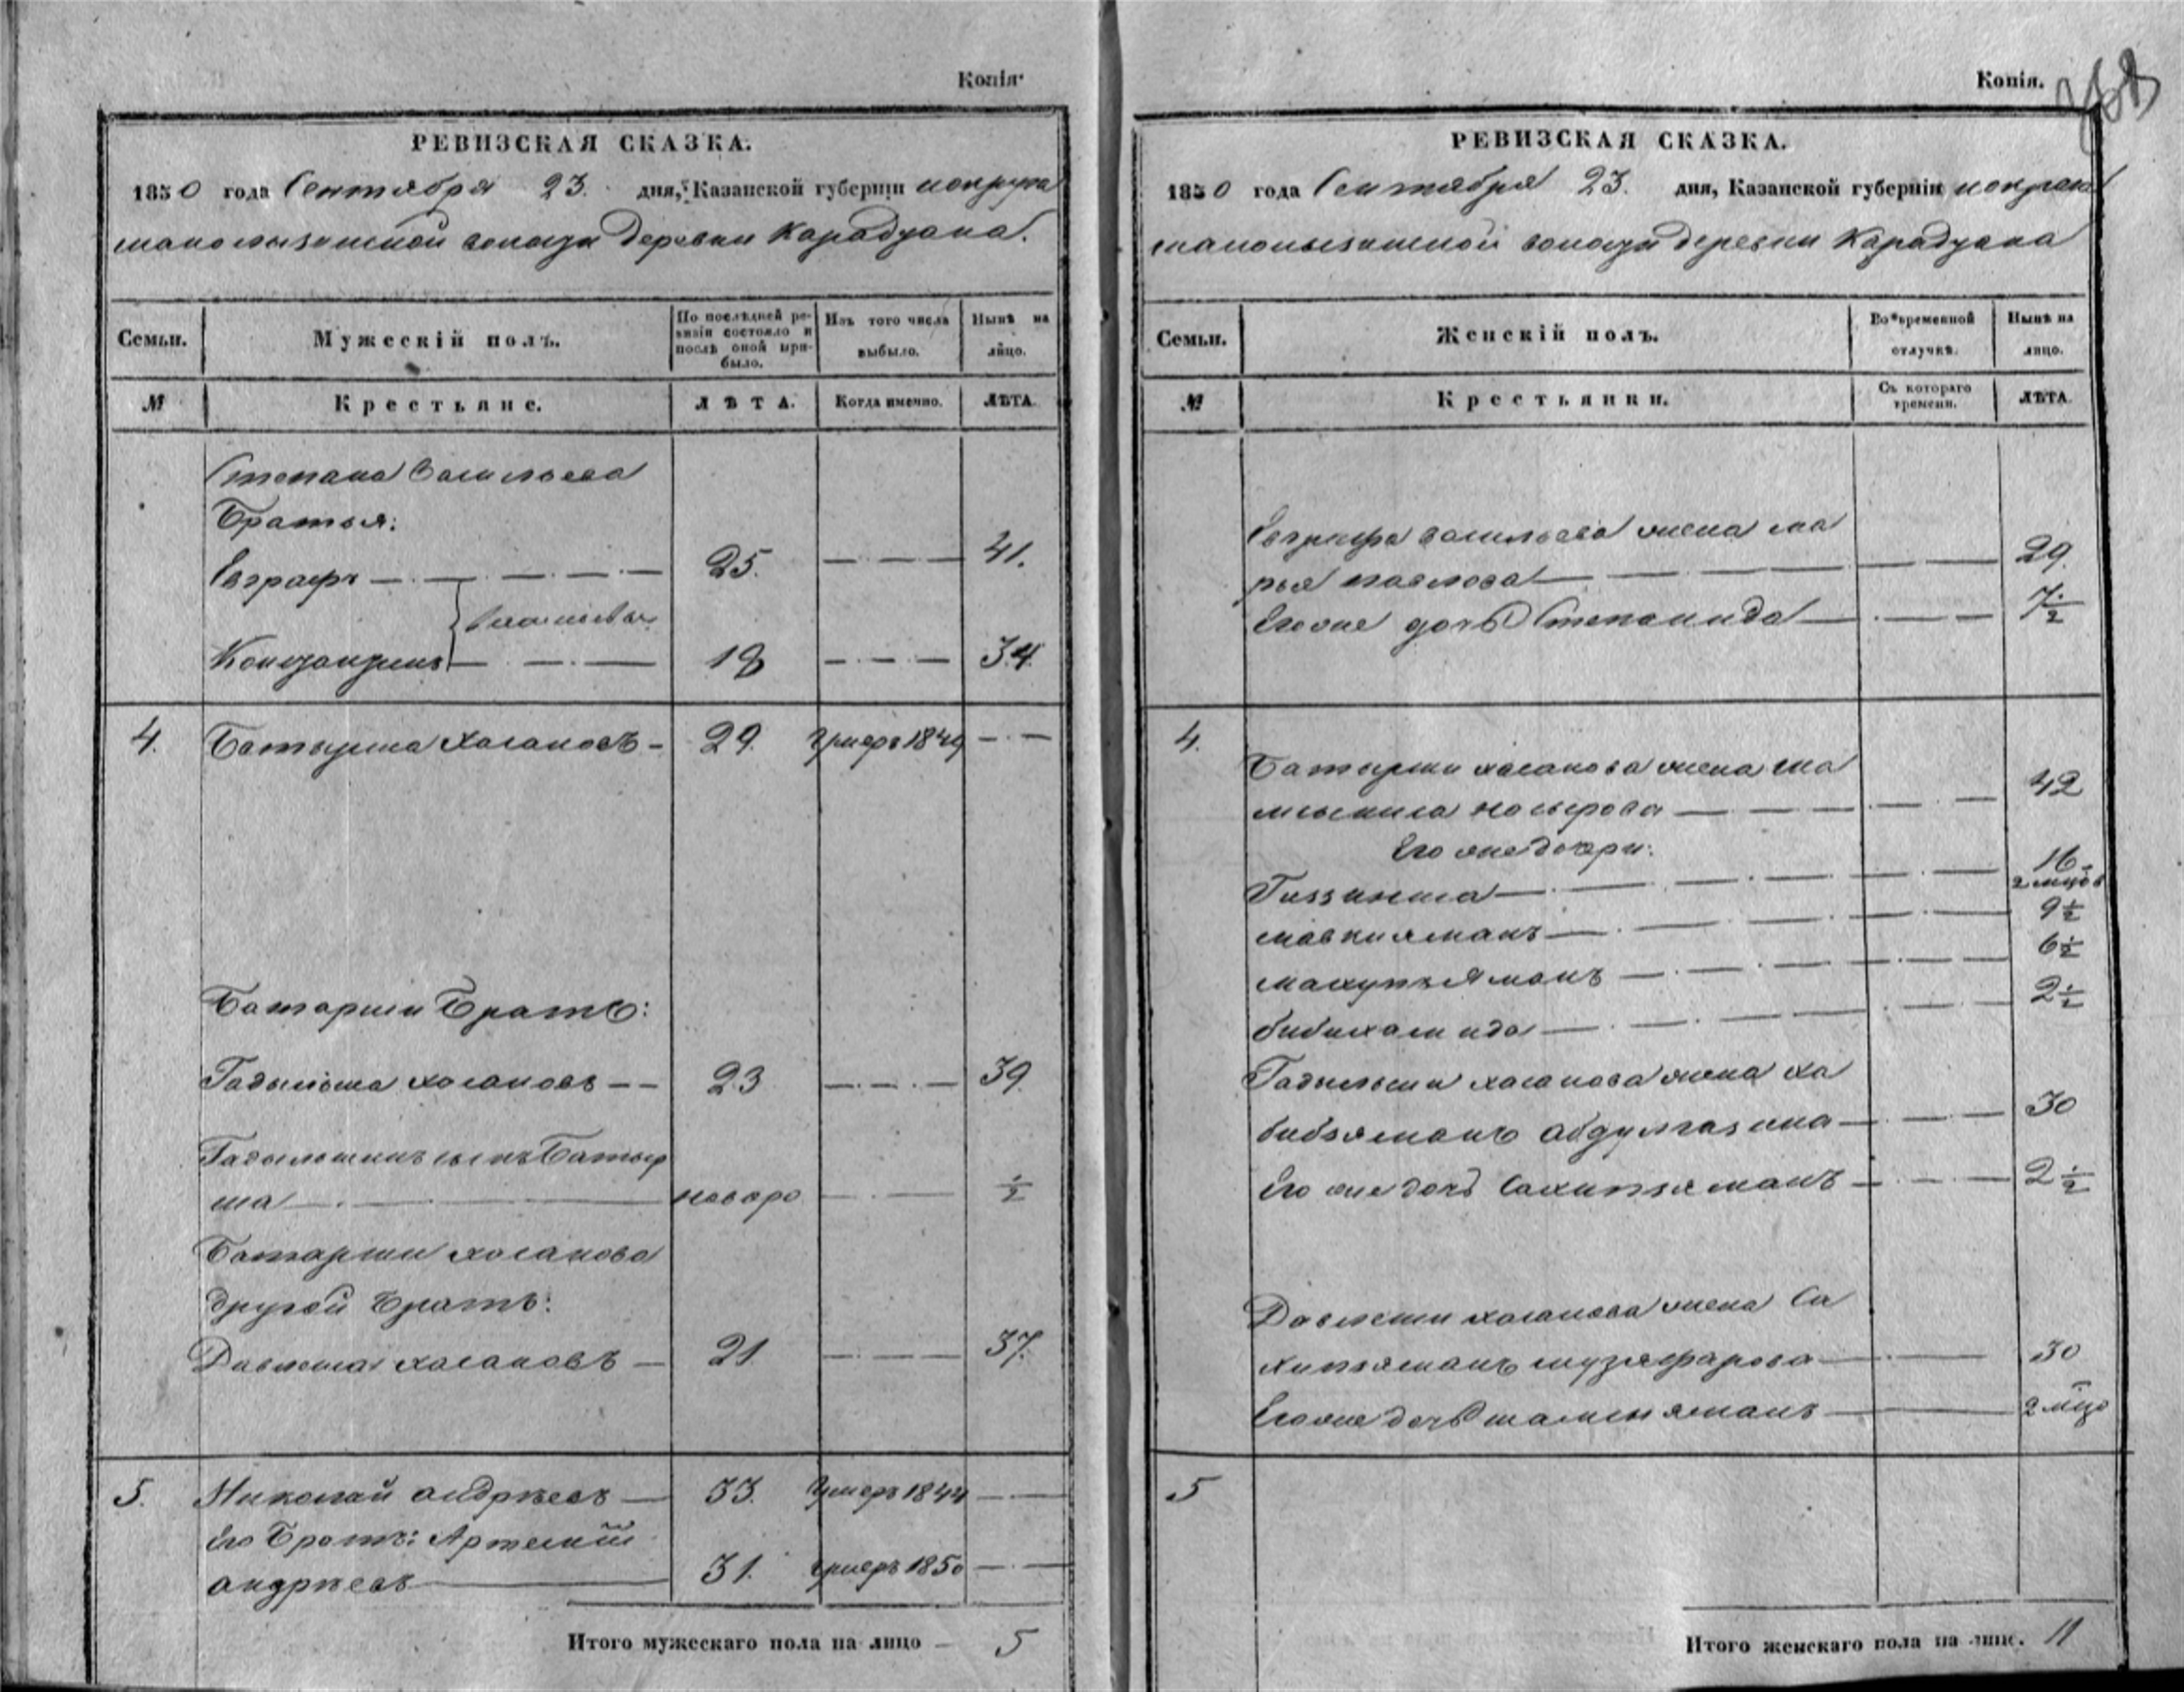 Копія.
РЕВИЗСКАЯ СКАЗКА.
1850 года Сентября 23. дня, Казанской губерніи
волости деревни Карадувана.
Семьи.
Мужескій полъ.
По послѣдней ревизіи состояло и послѣ оной прибыло.
Изъ того числа выбыло.
Нынѣ на лицо.
№
Крестьяне.
ЛѢТА.
Когда именно.
ЛѢТА.
Степана Васильева
Братья:
Евграфъ 25. 41.
Васильевы
Константинъ 18 34
4. Батырша Хасановъ 29. Умеръ 1849
Батарши Братъ:
Гадыльша Хасановъ 23 39.
Гадыльшинъ сынъ Батыр
ша новоро ½
Батарши Хасанова
другой Братъ:
Давлетша Хасановъ 21. 37.
5. Николай Андрѣевъ 33. Умеръ 1844
Его Братъ: Артемій
Андрѣевъ 31. Умеръ 1850
Итого мужескаго пола на лицо 5
Копія.
РЕВИЗСКАЯ СКАЗКА.
1850 года Сентября 23. дня, Казанской губерніи
волости деревни Карадувана
Семьи.
Женскій полъ.
Во временной отлучкѣ.
Нынѣ на лицо.
№
Крестьянки.
Съ котораго времени.
ЛѢТА.
Евграфа Васильева жена Ма
рья Павлова 29.
Его же дочь Степанида 7½
4. Батырши Хасанова жена
42
Его же дочери:
16.
2 мцов
9½
6½
Бибихамида 2½
Гадыльши Хасанова жена Ха
бибзяманъ Абдулгазина 30
Его же дочь Сахипзяманъ 2½
Давлетши Хасанова жена Са
хипзяманъ Музяфарова 30
Его же дочь 2 мцо
5
Итого женскаго пола на лицо. 11